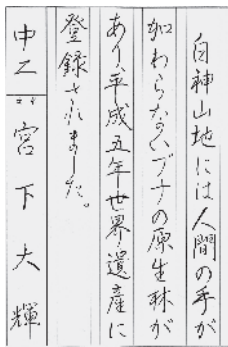 白神山地には人間の手が
加わらないブナの原生林が
あり、平成五年世界遺産に
登録されました。
中二 宮下大輝